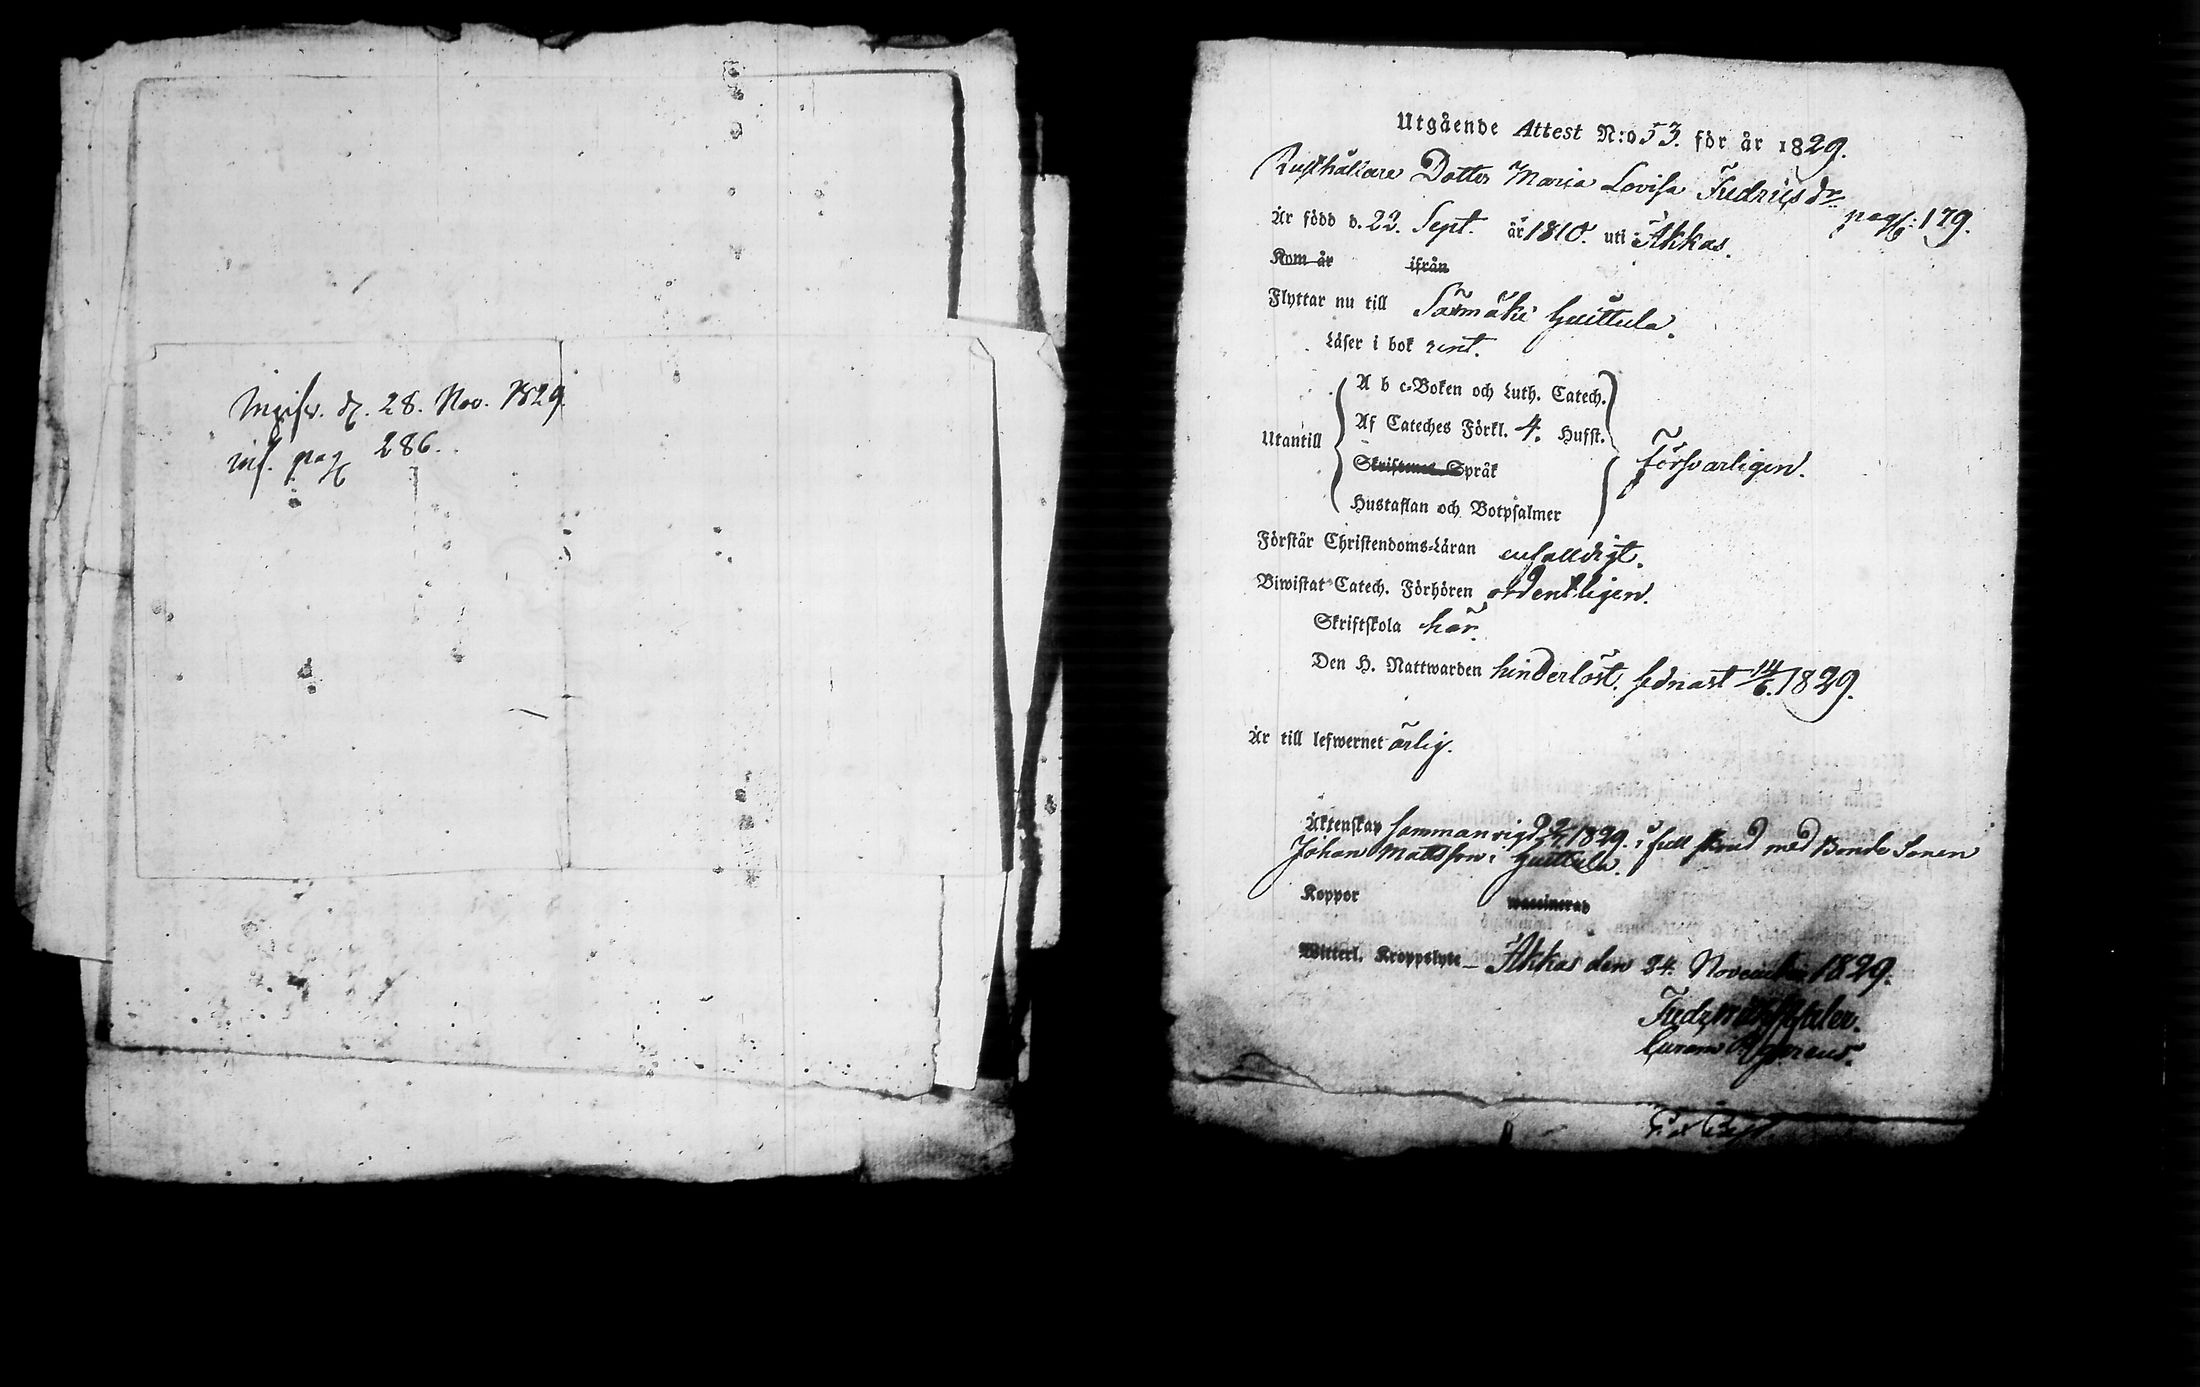 Ingifw. d. 28. Nov. 1829.
inf. pag 286.
Utgående Attest N:o 53. för år 1829.
Rusthållare Dotter Maria Lovisa Fredricsdr
pag: 179.
Är född d. 22. Sept. år 1810. uti Akkas.
Kom år ifrån
Flyttar nu till Säxmäki Huittula.
Läser i bok rent.
A b c-Boken och Luth. Catech.
Af Cateches Förkl. 4. Hufst.
Utantill
försvarligen.
Skriftenes Språk
Hustaflan och Botpsalmer
Förstår Christendoms-Läran enfalldigt.
Biwistat Catech. Förhören ordentligen.
Skriftskola här.
Den H. Nattwarden hinderlöst, sednast 14/6. 1829.
Är till lefwernet ärlig.
Äktenskap sammanvigd 1829. i full skrud med Bonde Sonen
Johan Mattsson i Huittula.
Koppor waccinerad
Witterl. Kroppslyte – Akkas den 24. November 1829.